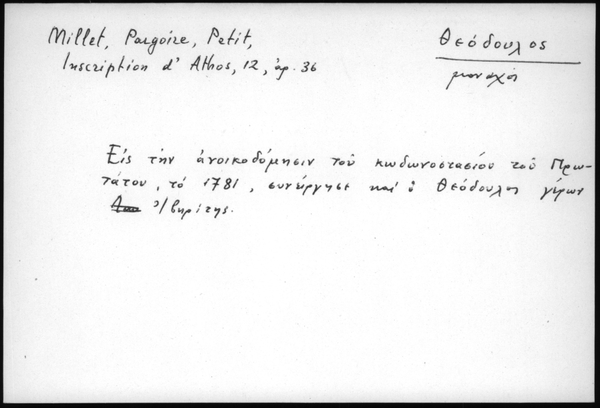 Millet, Pargoire, Petit,
Inscription d' Athos, 12, ἀρ. 36
Θεόδουλος
μοναχός
Εἰς τὴν ἀνοικοδόμησιν τοῦ κωδωνοστασίου τοῦ Πρω-
τάτου, τό 1781, συνήργησε καί ὁ Θεόδουλος γέρων
Ἰβηρίτης.